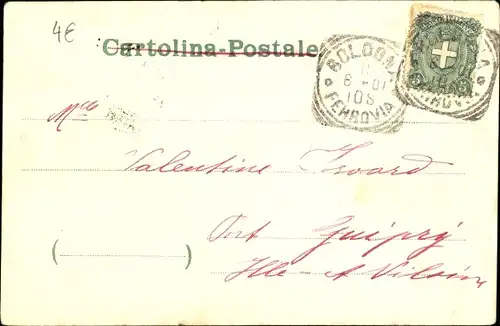 4€
Cartolina-Postale
BOLOGNA
8-01
10S
FERROVIA
Mlle
Valentine Isoard
Port Guipry
Ille-A Vilaine